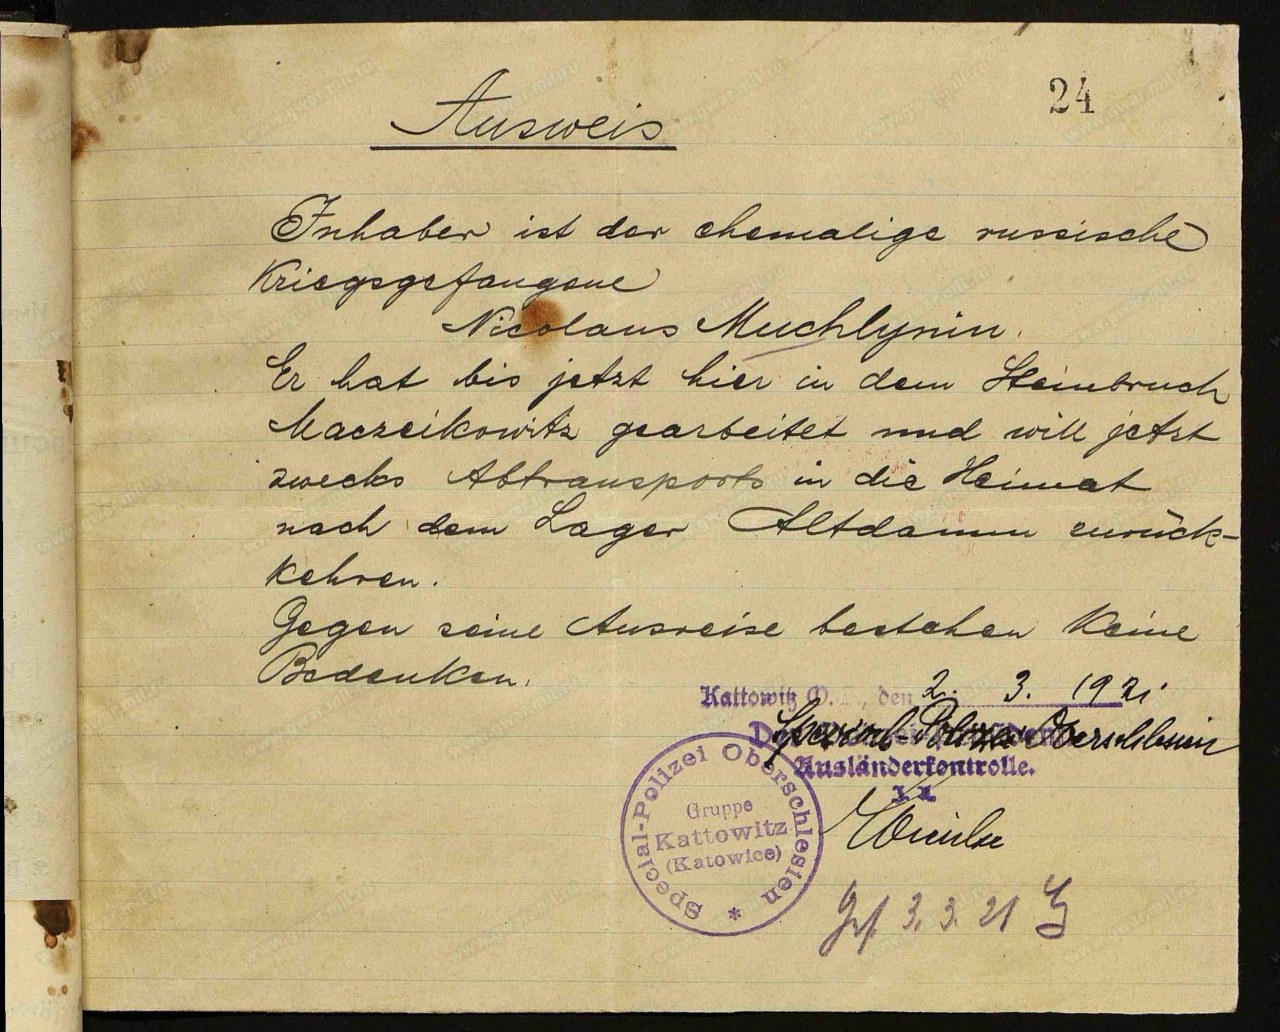 24
Ausweis
Inhaber ist der ehemalige russische
Kriegsgefangene
Nicolaus Muchlynin.
Er hat bis jetzt hier in dem Steinbruch
Maczeikowitz gearbeitet und will jetzt
zwecks Abtransports in die Heimat
nach dem Lager Altdamm zurück-
kehren.
Gegen seine Ausreise bestehen keine
Bedenken.
Kattowitz O. , den 2. 3. 1921
Special-Polizei Oberschlesien
Ausländerkontrolle.
Special-Polizei Oberschlesien
Gruppe
Kattowitz
(Katowice)
*
3. 3. 21
www.gwar.mil.ru